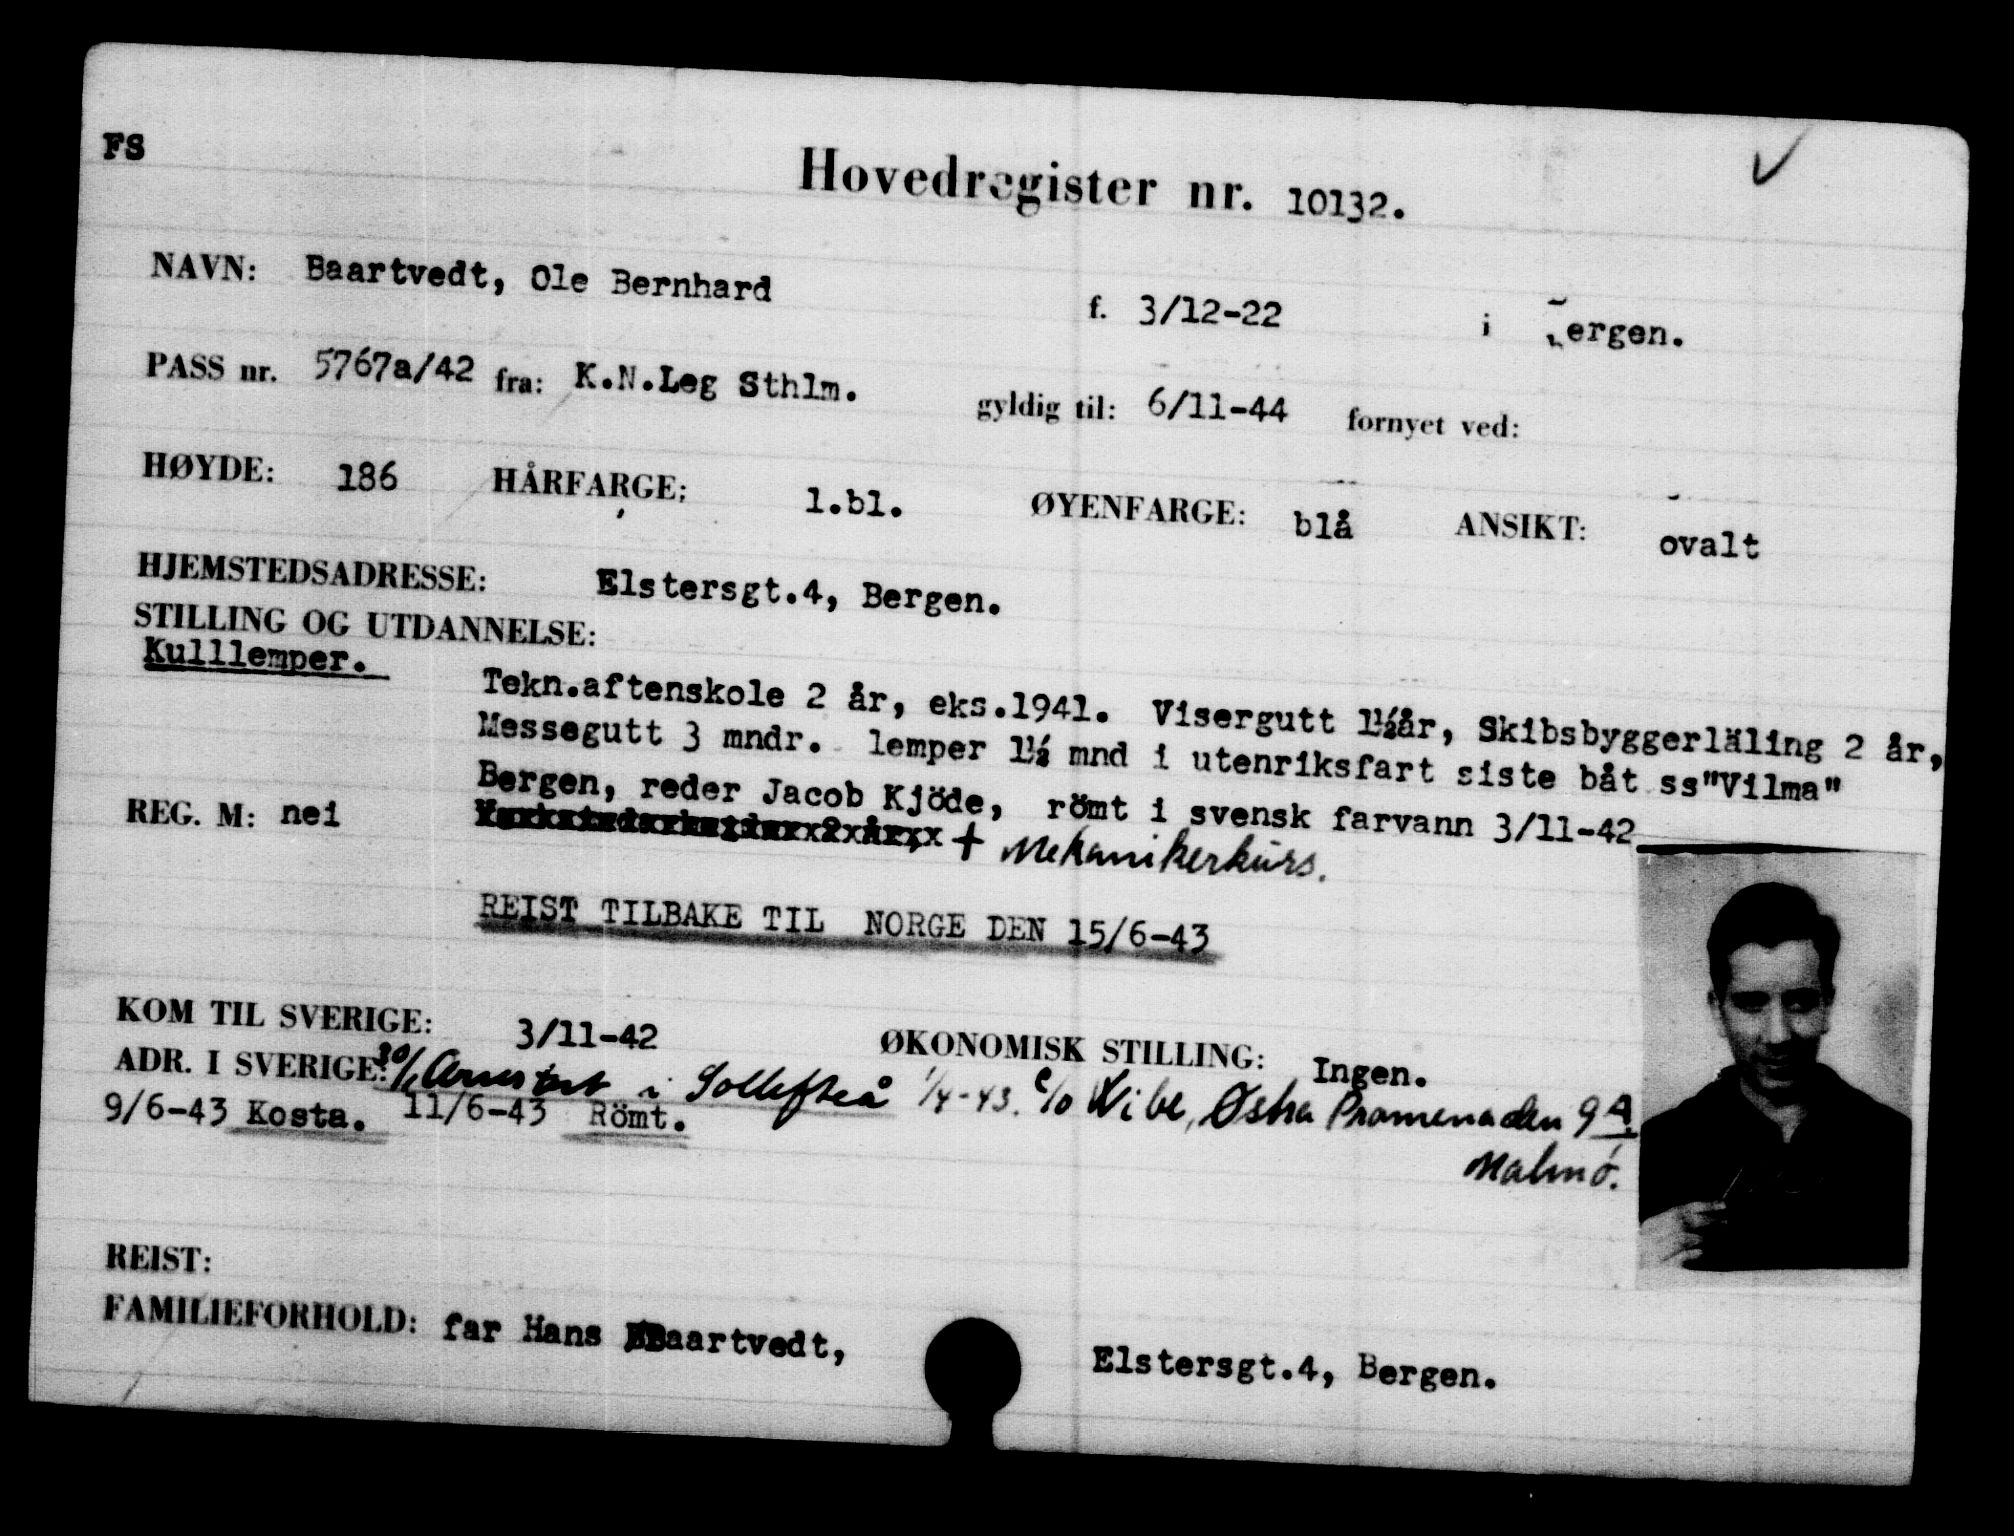 FS
Hovedregister nr. 10132.
NAVN: Baartvedt, Ole Bernhard f. 3/12-22 i Bergen.
PASS nr. 5767a/42 fra: K.N.Leg Sthlm. gyldig til: 6/11-44 fornyet ved:
HØYDE: 186 HÅRFARGE: l.bl. ØYENFARGE: blå ANSIKT: ovalt
HJEMSTEDSADRESSE: Elstersgt.4, Bergen.
STILLING OG UTDANNELSE:
Kulllemper.
Tekn.aftenskole 2 år, eks.1941. Visergutt 1½år, Skibsbyggerläling 2 år,
Messegutt 3 mndr. lemper 1½ mnd i utenriksfart siste båt ss"Vilma"
Bergen, reder Jacob Kjöde, römt i svensk farvann 3/11-42
REG. M: nei + Mekanikerkurs.
REIST TILBAKE TIL NORGE DEN 15/6-43
KOM TIL SVERIGE: 3/11-42 ØKONOMISK STILLING: Ingen.
ADR. I SVERIGE: i Sollefteå 1/4-43. c/o Wibe, Østra Promenaden 9A,
Malmö.
9/6-43 Kosta. 11/6-43 Römt.
REIST:
FAMILIEFORHOLD: far Hans Baartvedt, Elstersgt.4, Bergen.